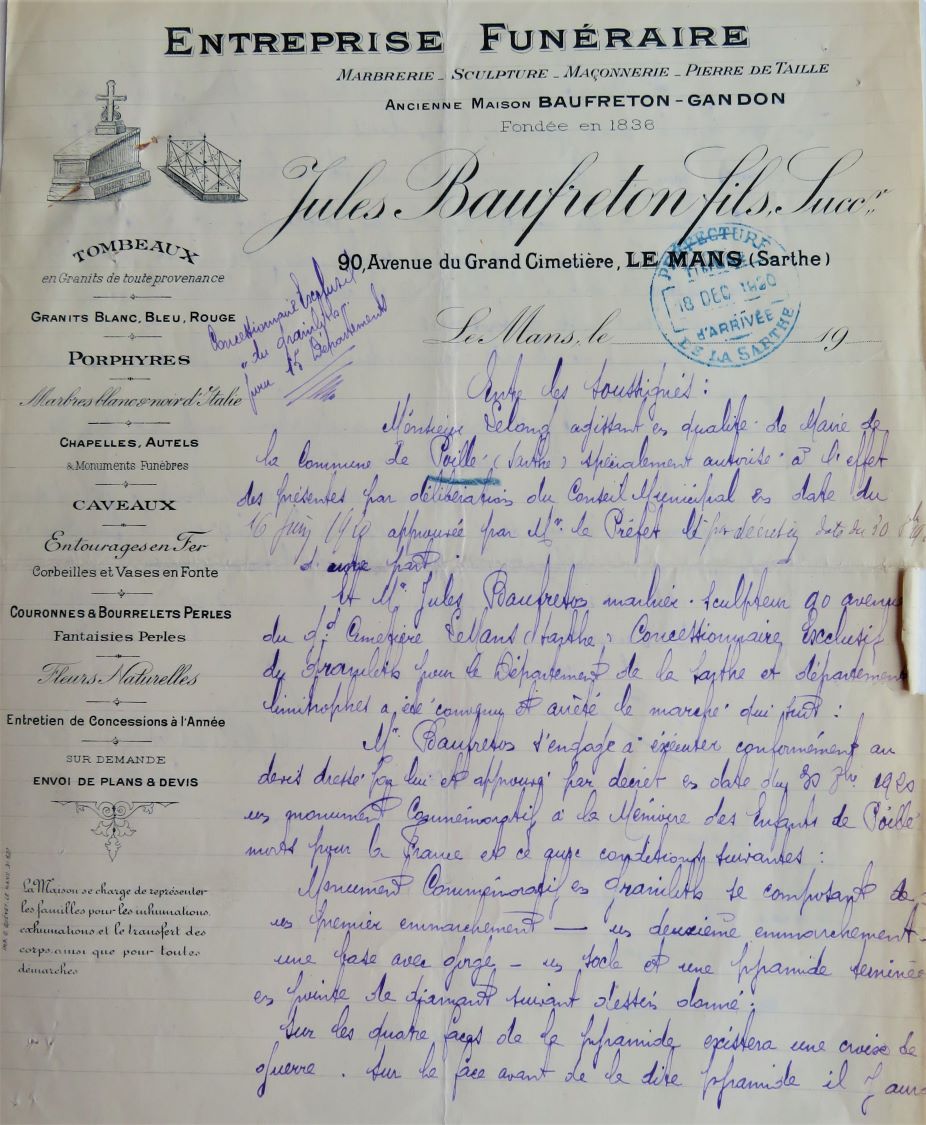 ENTREPRISE FUNÉRAIRE
MARBRERIE - SCULPTURE - MAÇONNERIE - PIERRE DE TAILLE
ANCIENNE MAISON BAUFRETON-GANDON
Fondée en 1836
Jules Baufreton fils, Succr.
90, Avenue du Grand Cimetière, LE MANS (Sarthe)
PRÉFECTURE
18 DEC 1920
D'ARRIVÉE
DE LA SARTHE
Le Mans, le 19
TOMBEAUX
en Granits de toute provenance
GRANITS BLANC, BLEU, ROUGE
PORPHYRES
Marbres blanc & noir d'Italie
CHAPELLES, AUTELS
& Monuments Funèbres
CAVEAUX
Entourages en Fer
Corbeilles et Vases en Fonte
COURONNES & BOURRELETS PERLES
Fantaisies Perles
Fleurs Naturelles
Entretien de Concessions à l'Année
SUR DEMANDE
ENVOI DE PLANS & DEVIS
La Maison se charge de représenter
les familles pour les inhumations,
exhumations et le transfert des
corps, ainsi que pour toutes
démarches
Concessionnaire Exclusif
"du granilith"
pour 15 Départements
Entre les soussignés :
Monsieur Lelong agissant en qualité de Maire de
la Commune de Poillé (Sarthe) spécialement autorisé à l'effet
des présentes par délibération du Conseil Municipal en date du
16 Juin 1920 approuvée par Mr. le Préfet par décret en date du 30
d'une part
Et Mr. Jules Baufreton marbrier-sculpteur 90 avenue
du Gd. Cimetière Le Mans (Sarthe) Concessionnaire Exclusif
du Granilith pour le Département de la Sarthe et département
limitrophes a été convenu et arrêté le marché qui suit :
Mr. Baufreton s'engage à exécuter conformément au
devis dressé par lui et approuvé par décret en date du 30 1920
un monument Commémoratif à la Mémoire des Enfants de Poillé
morts pour la France et ce aux conditions suivantes :
Monument Commémoratif en Granilith se composant de
un premier emmarchement — un deuxième emmarchement
une base avec gorge — un socle et une pyramide terminée
en pointe de diamant suivant dessin donné ;
Sur les quatre faces de la pyramide existera une croix de
guerre. Sur la face avant de la dite pyramide il y aura